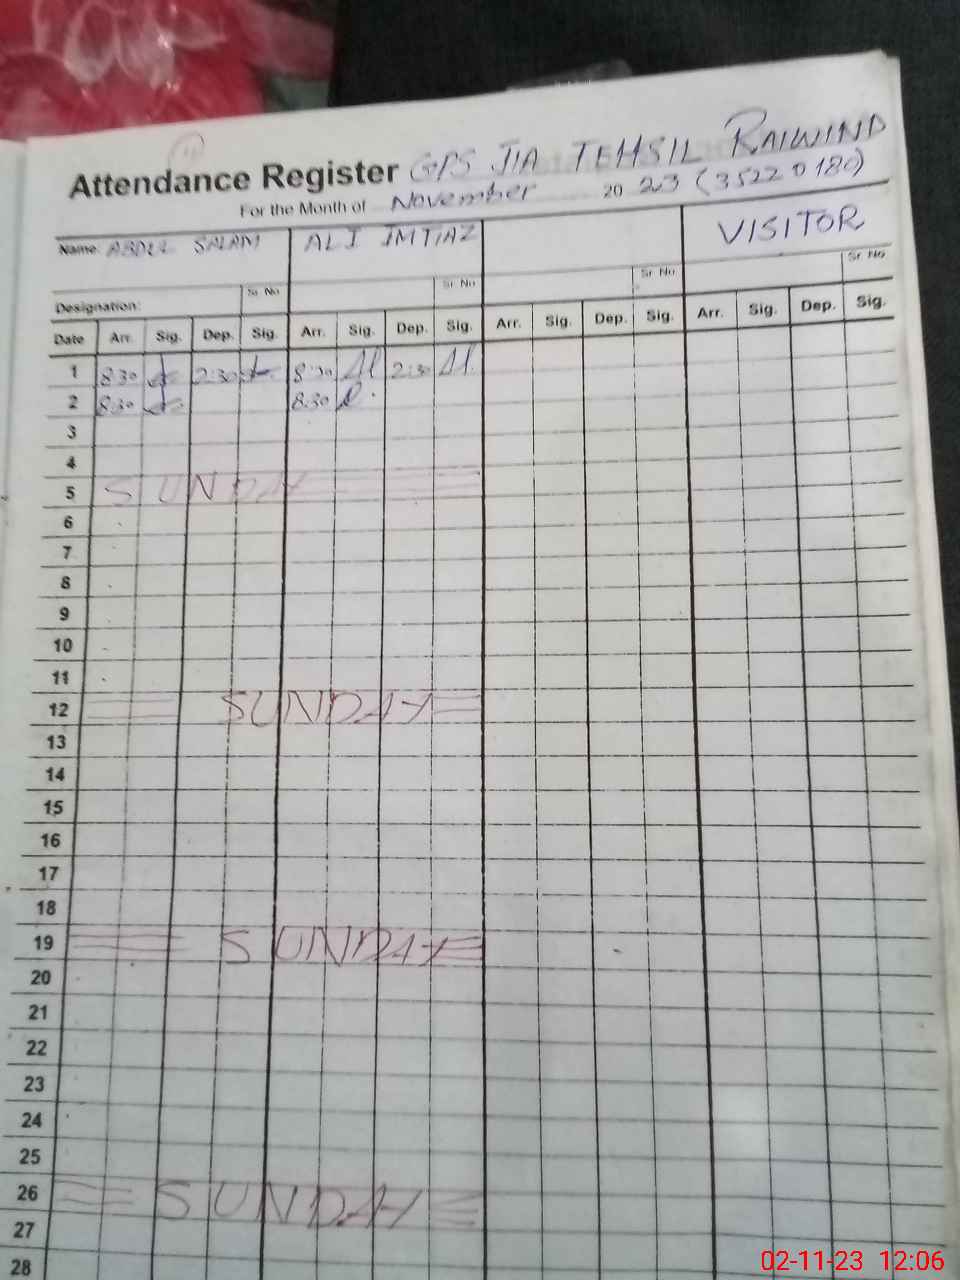 Attendance Register GPS JIA TEHSIL RAIWIND
For the Month of November 2023 (35220180)
Name: ABDUL SALAM ALI IMTIAZ VISITOR
Designation: Sr. No Sr. No Sr. No Sr. No
Date Arr. Sig. Dep. Sig. Arr. Sig. Dep. Sig. Arr. Sig. Dep. Sig. Arr. Sig. Dep. Sig.
1 8:30 2:30 8:30 2:30
2 8:30 8:30
3
4
5 SUNDAY
6
7
8
9
10
11
12 SUNDAY
13
14
15
16
17
18
19 SUNDAY
20
21
22
23
24
25
26 SUNDAY
27
28
02-11-23 12:06